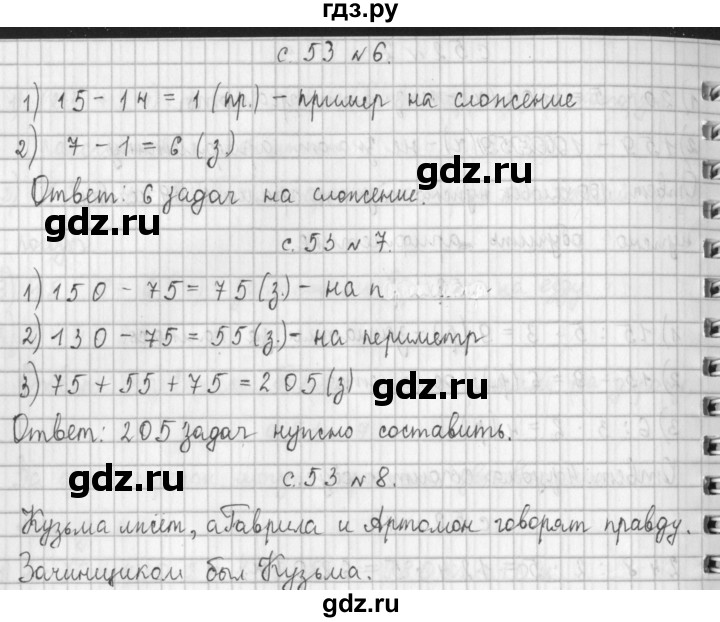 гдз.ру
с. 53 №6.
1) 15 - 14 = 1 (пр.) - пример на сложение
2) 7 - 1 = 6 (з.)
gdz.ru
Ответ: 6 задач на сложение.
gdz.ru
с. 53 №7.
1) 150 - 75 = 75 (з.) - на п
2) 130 - 75 = 55 (з.) - на периметр
3) 75 + 55 + 75 = 205 (з)
gdz.ru
Ответ: 205 задач нужно составить.
gdz.ru
с. 53 №8.
Кузьма лжёт, а Гаврила и Артомон говорят правду.
Зачинщиком был Кузьма.
gdz.ru